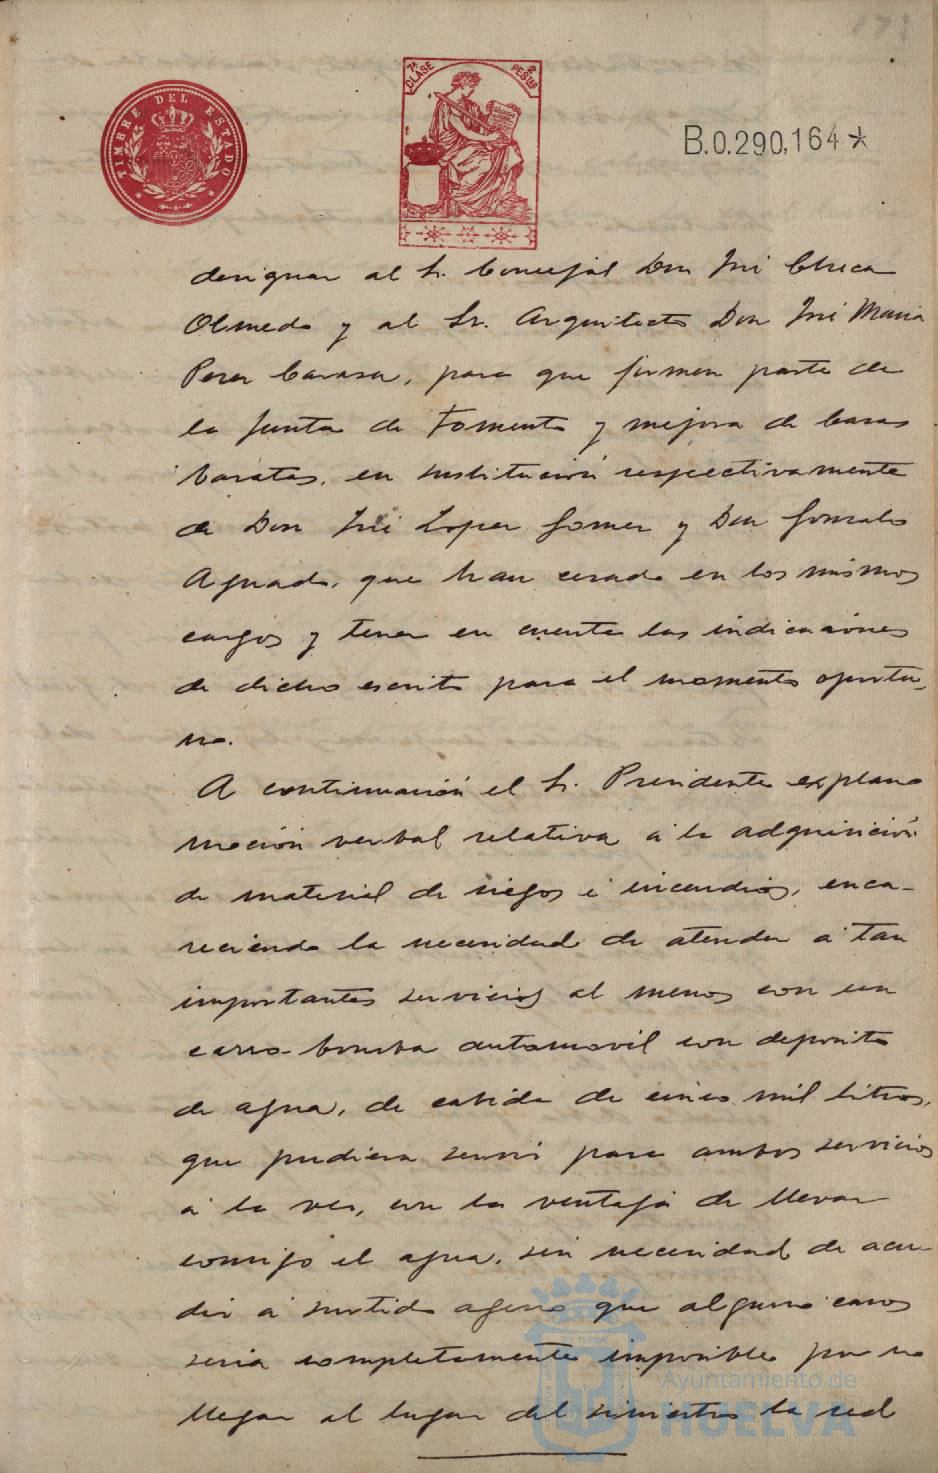 TIMBRE DEL ESTADO
7ª CLASE 2 PESTAS
B.0.290,164*
designar al Sr. Concejal Don José Checa
Olmedo y al Sr. Arquitecto Don José Maria
Perez Carasa, para que formen parte de
la Junta de Fomento y mejora de Casas
baratas, en sustitución respectivamente
de Don José Lopez Gomez y Don Gonzalo
Aguado, que han cesado en los mismos
cargos y tener en cuenta las indicaciones
de dicho escrito para el momento oportu-
no.
A continuación el Sr. Presidente explanó
moción verbal relativa á la adquisición
de material de riegos é incendios, enca-
reciendo la necesidad de atender á tan
importantes servicios al menos con un
carro-bomba automovil con deposito
de agua, de cabida de cinco mil litros,
que pudiera servir para ambos servicios
á la vez, con la ventaja de llevar
consigo el agua, sin necesidad de acu-
dir á surtido ageno que algunos casos
seria completamente imposible por no
llegar al lugar del siniestro la red
Ayuntamiento de
HUELVA